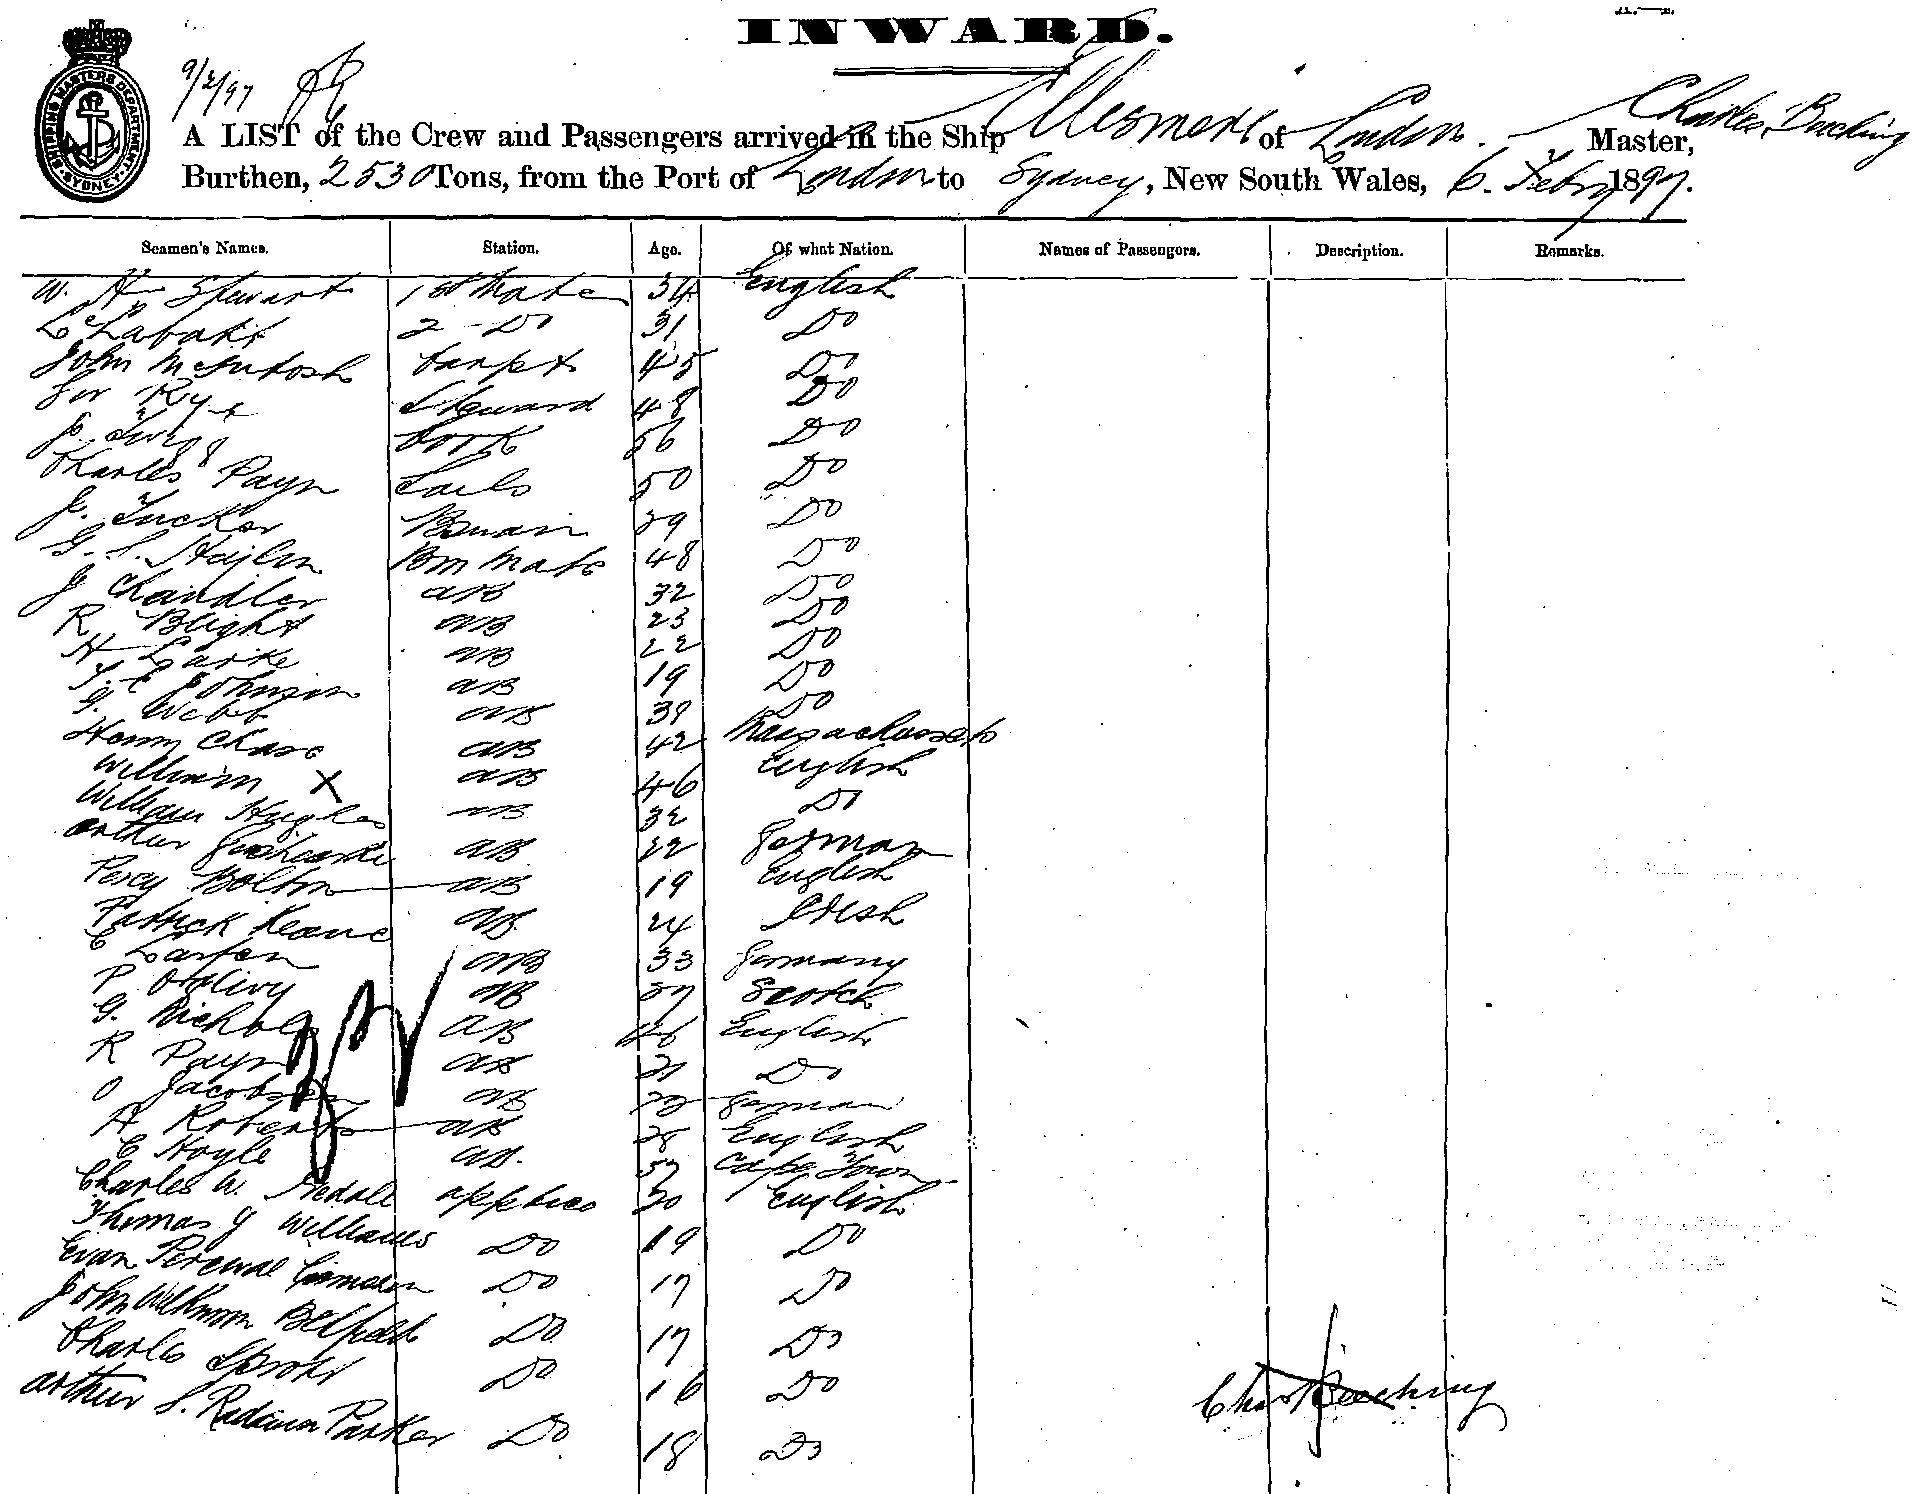 INWARD.
SHIPPING MASTERS DEPARTMENT SYDNEY
9/2/97
A LIST of the Crew and Passengers arrived in the Ship Ellesmere of London. Charles Beeching Master,
Burthen, 2530 Tons, from the Port of London to Sydney, New South Wales, 6. Febry 1897.
Seamen's Names. Station. Age. Of what Nation. Names of Passengers. Description. Remarks.
W. H Stewart 1st Mate 34 English
2 - Do 31 Do
John McIntosh Carpt 45 Do
Rye Steward 48 Do
J. Twigg Cook 56 Do
Charles Payn Sails 50 Do
J. Tucker Bosuain 39 Do
G. S. Bsn Mate 48 Do
J Chandler AB 32 Do
R Blight AB 23 Do
H Larke AB 22 Do
T. E Johnson AB 19 Do
G. Webb AB 39 Do
Henry Chase AB 42 Massachusets
William X AB 46 English
William Hughes AB 32 Do
Arthur AB 22 German
Percy Bolton AB 19 English
Patrick Keane AB. 24 Irish
C Larsen AB 33 Germany
P Ogilivy AB 27 Scotch
G. Nichols AB 46 English
R Payn AB 21 Do
O Jacobsen AB German
A Roberts AB 28 English
C Hoyle AB. 57 Cape Town
Charles W. apptice 20 English
Thomas J Williams Do 19 Do
Evan Percival Do 17 Do
John Wilkinson Belfield Do 17 Do
Charles Sproat Do 16 Do
Chas Beeching
Arthur S. Parker Do 18 Do